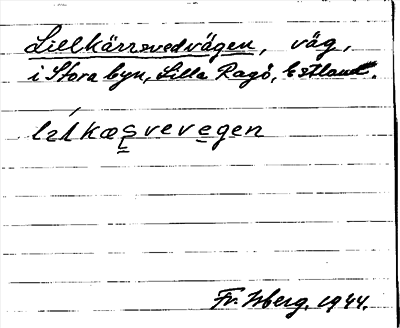 Lillkärrsvedvägen, väg,
i Stora byn, Lilla Rågö, Estland.
lɩlkæʂvevegen
Fr. Isberg. 1944.